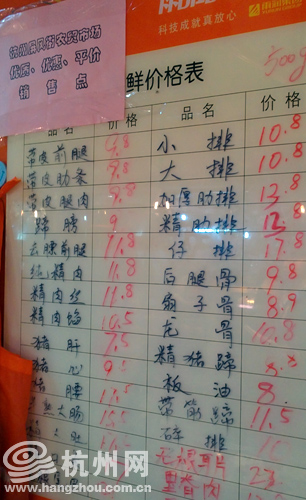 科技成就真放心
农贸市场
优质、优惠、平价
销售点
鲜价格表
500g
品名 价格 品名 价格
带皮前腿 9.8 小排 10.8
带皮肋条 9.8 大排 10.8
带皮腿肉 9.8 加厚肋排 13.8
蹄膀 9 精肋排 13.8
去膘前腿 11.8 仔排 17.8
纯精肉 11.8 后腿骨 9.8
精肉丝 11.8 扇子骨 8.9
精肉馅 10.5 龙骨 10.8
猪肝 7.5 精猪蹄
猪心 9.5 板油 8.
猪腰 带筋蹄 11.5
碎排
里脊肉
杭州网
www.hangzhou.com.cn